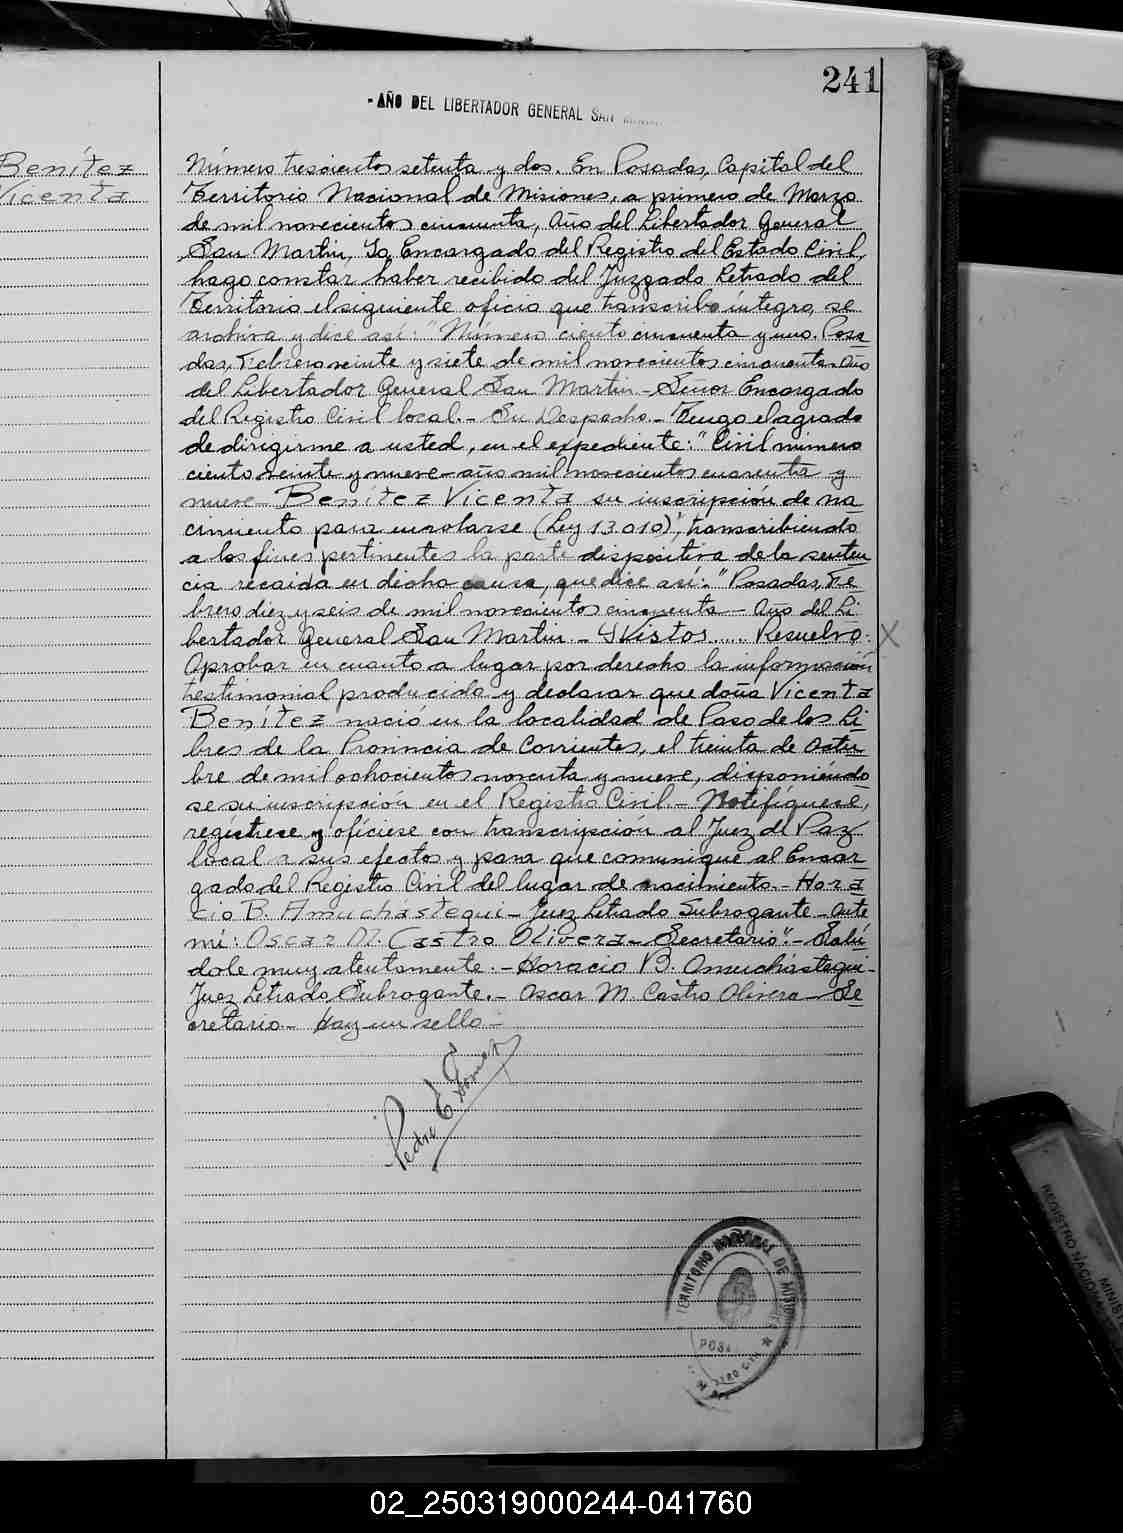 241
- AÑO DEL LIBERTADOR GENERAL SAN
Benítez
Vicenta
Número trescientos setenta y dos. En Posadas, Capital del
Territorio Nacional de Misiones, a primero de Marzo
de mil novecientos cincuenta, Año del Libertador General
San Martín, Yo Encargado del Registro del Estado Civil,
hago constar haber recibido del Juzgado Letrado del
Territorio el siguiente oficio que transcribo íntegro, se
archiva y dice así: "Número ciento cincuenta y uno. Posa
das, Febrero veinte y siete de mil novecientos cincuenta-Año
del Libertador General San Martín - Señor Encargado
del Registro Civil local.- Su Despacho.- Tengo el agrado
de dirigirme a usted, en el expediente: "Civil número
ciento veinte y nueve-año mil novecientos cuarenta y
nueve- Benítez Vicenta su inscripción de na
cimiento para enrolarse (Ley 13.010)", transcribiendo
a los fines pertinentes la parte dispositiva de la senten
cia recaida en dicha causa, que dice así: "Posadas, Fe
brero diez y seis de mil novecientos cincuenta - Año del Li
bertador General San Martin - Y Vistos..... Resuelvo: X
Aprobar en cuanto a lugar por derecho la información
testimonial producida y declarar que doña Vicenta
Benítez nació en la localidad de Paso de los Li
bres de la Provincia de Corrientes, el treinta de Octu
bre de mil ochocientos noventa y nueve, disponiéndo
se su inscripción en el Registro Civil.- Notifíquese,
regístrese y ofíciese con transcripción al Juez de Paz
local a sus efectos y para que comunique al Encar
gado del Registro Civil del lugar de nacimiento.- Hora
cio B. Amuchástegui - Juez Letrado Subrogante - Ante
mí: Oscar M. Castro Olivera - Secretario".- Salú
dole muy atentamente.- Horacio B. Amuchástegui-
Juez Letrado Subrogante.- Oscar M Castro Olivera - Se
cretario.- Hay un sello-
Pedro E
TERRITORIO NACIONAL DE MISIONES
POSA
REGISTRO NACION
MINIST
02_250319000244-041760